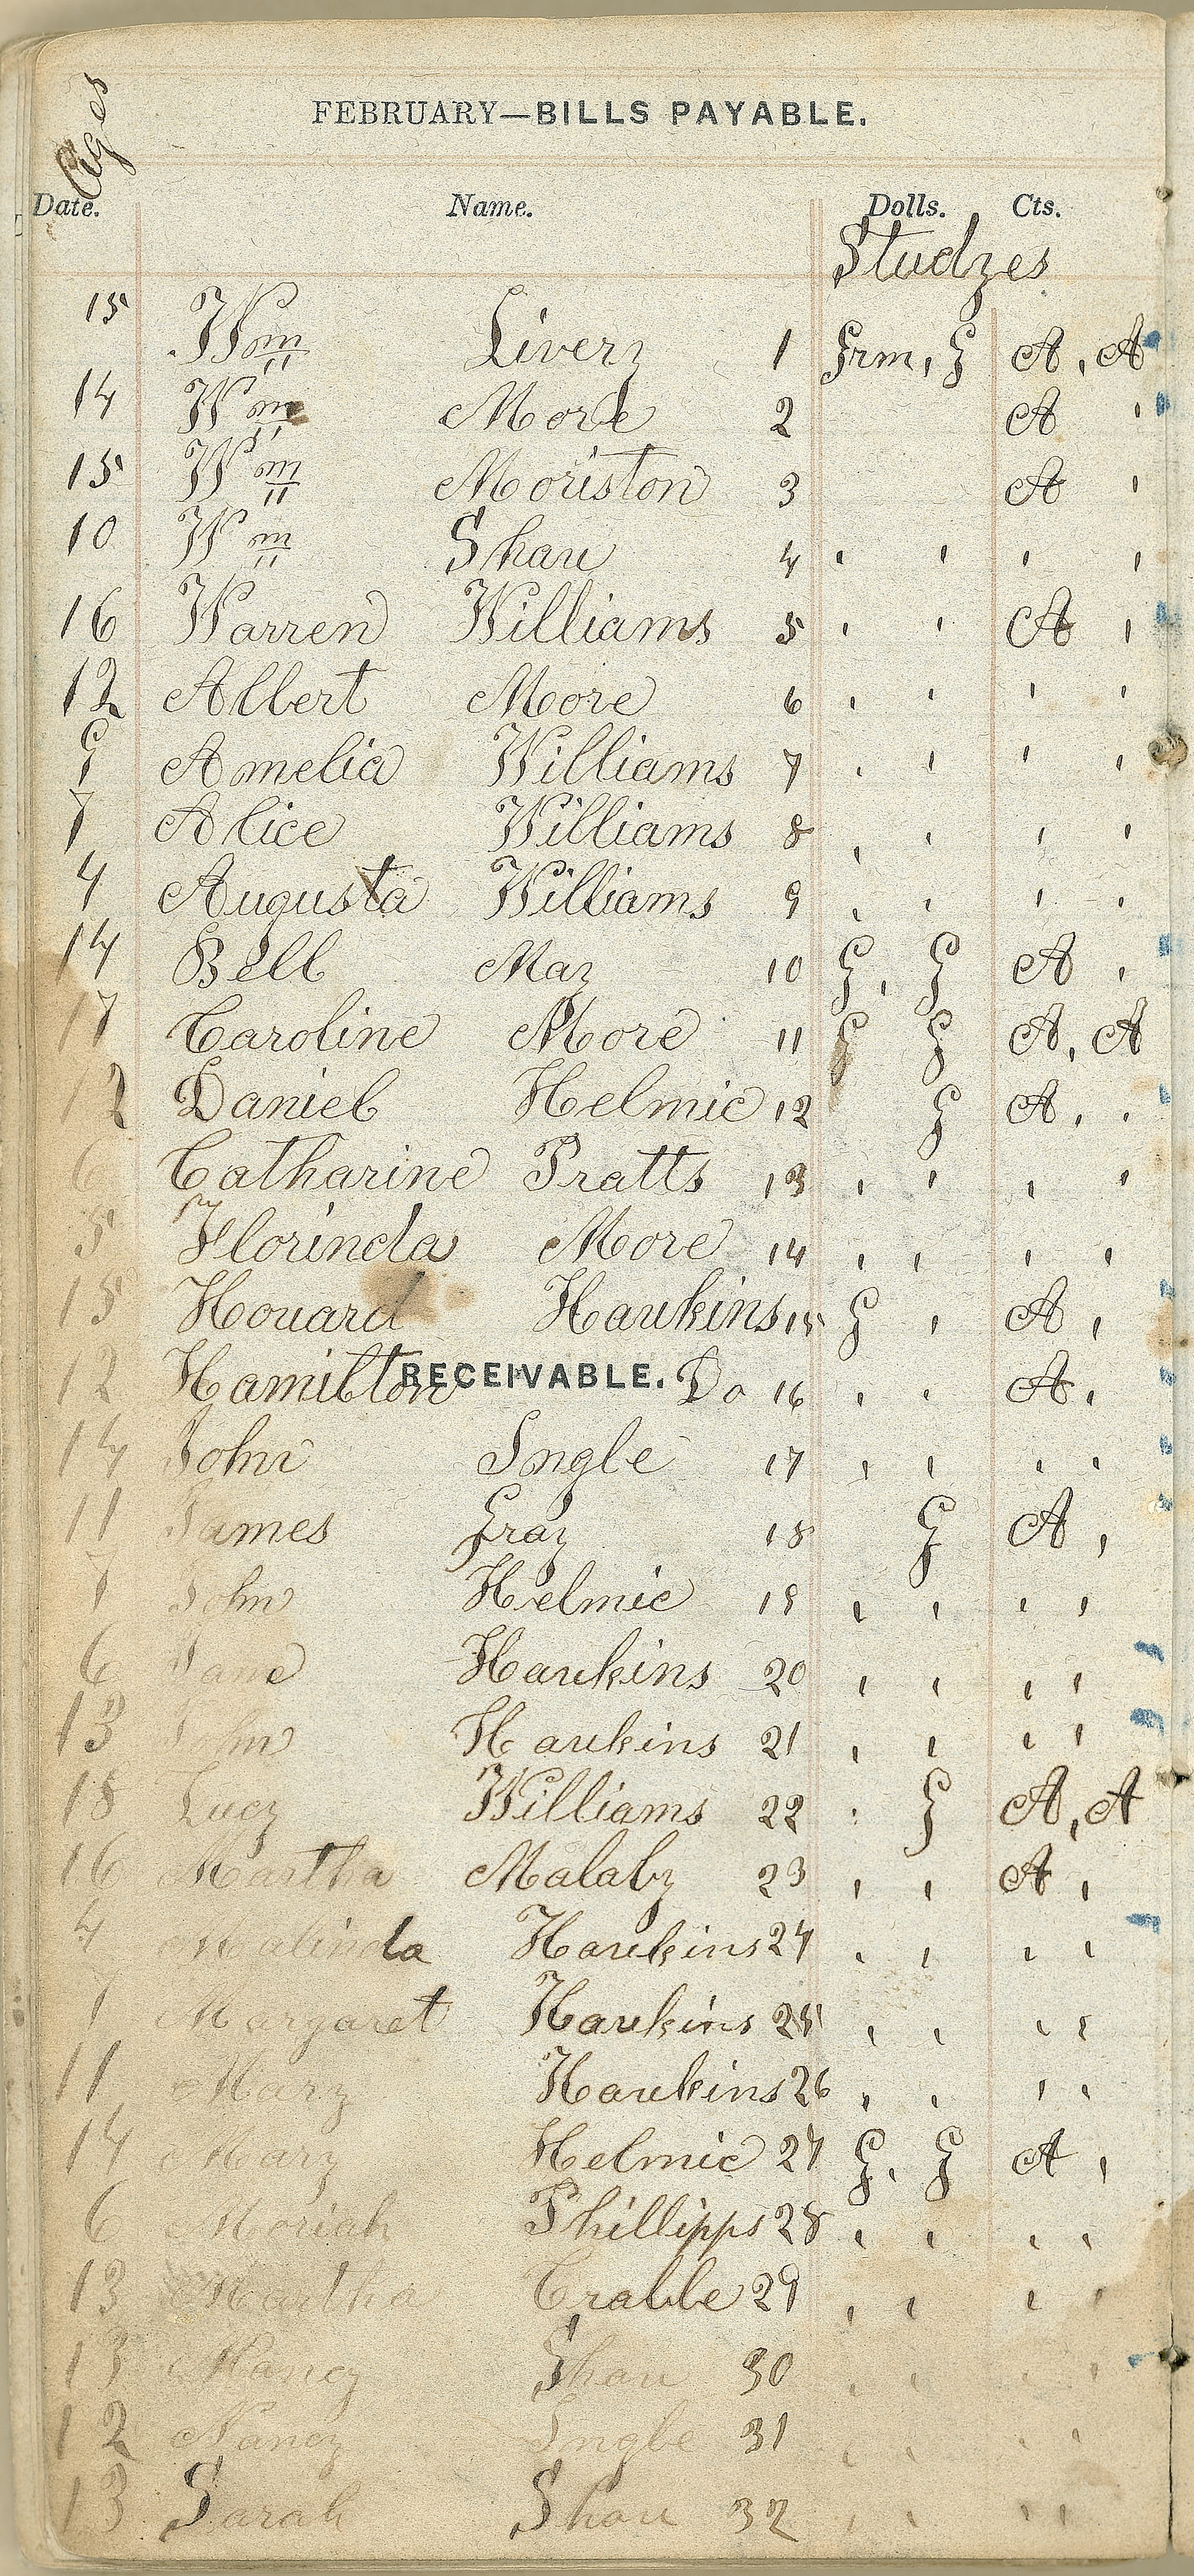 Ages
FEBRUARY—BILLS PAYABLE.
Date. Name. Dolls. Cts.
Studyes
15 Wm Livery 1 Grm, G A, A
14 Wm More 2 A '
15 Wm Moriston 3 A '
10 Wm Shaw 4 ' ' ' '
16 Warren Williams 5 ' ' A '
12 Albert Moore 6 ' ' ' '
9 Amelia Williams 7 ' ' ' '
7 Alice Williams 8 ' ' ' '
4 Augusta Williams 9 ' ' ' '
14 Bell May 10 G, G A '
17 Caroline More 11 G G A, A
12 Daniel Helmic 12 G A, '
6 Catharine Pratts 13 ' ' ' '
5 Florinda More 14 ' ' ' '
15 Howard Hawkins 15 G ' A,
RECEIVABLE.
12 Hamilton Do 16 ' ' A,
14 John Ingle 17 ' ' ' '
11 James Gray 18 G A,
7 John Helmic 19 ' ' ' '
6 Jane Hawkins 20 ' ' ' '
13 John Hawkins 21 ' ' ' '
18 Lucy Williams 22 : G A, A
16 Martha Malaby 23 ' ' A,
4 Malinda Hawkins 24 ' ' ' '
7 Margaret Hawkins 25 ' ' ' '
11 Mary Hawkins 26 ' ' ' '
14 Mary Helmic 27 G, G A,
6 Moriah Phillipps 28 ' ' ' '
13 Martha Crabbe 29 ' ' ' '
13 Nancy Shaw 30 ' ' ' '
12 Nancy Ingle 31 ' ' ' '
13 Sarah Shaw 32 ' ' ' '